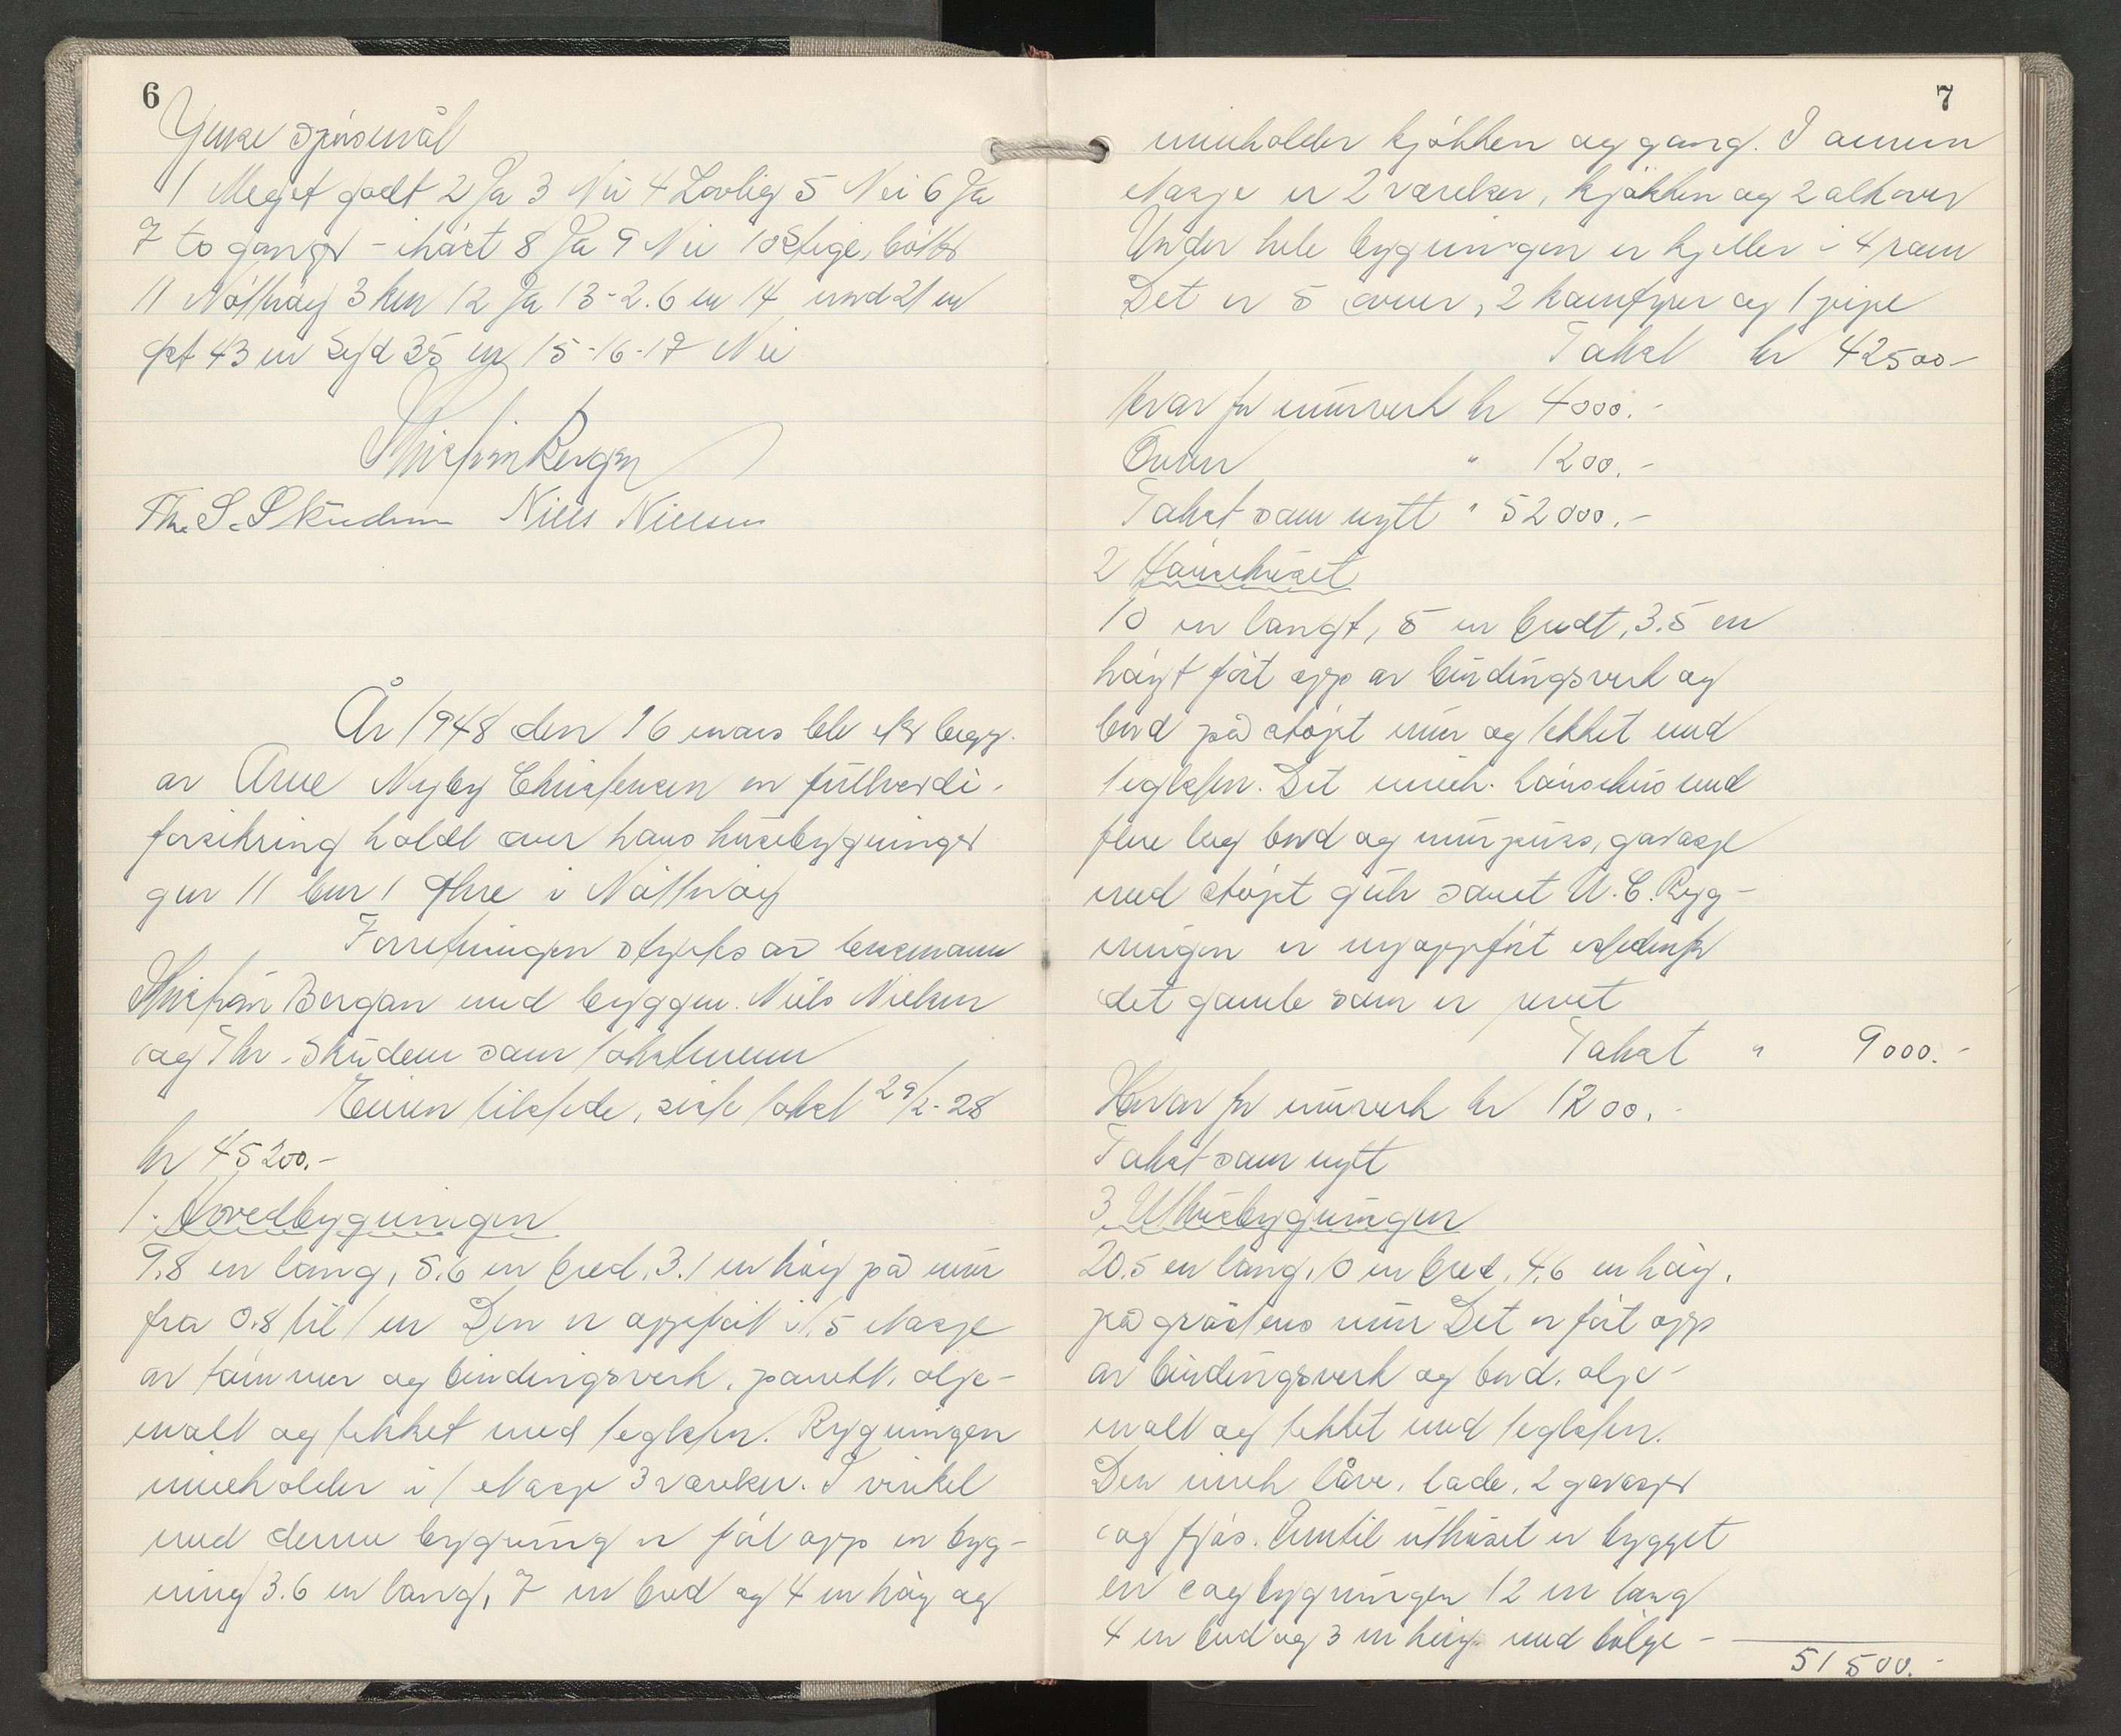 6
Ymse spörsmål
1 Meget godt 2 Ja 3 Nei 4 Lovlig 5 Nei 6 Ja
7 to ganger - året 8 Ja 9 Nei 10 Stige, bötter
11 Nötteröy 3 km 12 Ja 13 - 2.6 m 14 nord 21 m
öst 43 m Syd 35 m 15-16-17 Nei
Thorstein Bergan
Thr. S. Skudem Niels Nielsen
År 1948 den 16 mars ble etter begj.
av Arne Nyby Christensen en fullverdi-
forsikring holdt over hans husebygninger
gnr 11 bnr 1 i Nötteröy
Forretningen styrtes av lensmann
Bergan med byggm. Niels Nielsen
og Thr. Skudem som takstmenn
Eieren tilstede, siste takst 29/2-28
kr 45200.-
1. Hovedbygningen
9.8 m lang, 5.6 m bred, 3.1 m höy på mur
fra 0.8 til 1 m Den er oppfört i 1.5 etasje
av tömmer og bindingsverk, panelt, olje-
malt og tekket med teglsten. Bygningen
inneholder i 1 etasje 3 værelser. I vinkel
med denne bygning er fört opp en byg-
ning 3.6 m lang, 7 m bred og 4 m höy og
7
inneholder kjökken og gang. I annen
etasje er 2 værelser, kjökken og 2 alkover
Under hele bygningen er kjeller i 4 rom
Det er 5 ovner, 2 komfyrer og 1 pipe
Takst kr 42500-
Herav for murverk kr 4000.-
Ovner " 1200.-
Takst som nytt " 52000.-
2 Hönsehuset
10 m langt, 5 m bredt, 3.5 m
höyt fört opp av bindingsverk og
bord på stöpt mur og tekket med
teglsten. Det inneh. hönsehus med
flere lag bord og murpuss, garasje
med stöpt gulv samt W.C. Byg-
ningen er ny oppfört istedenfor
det gamle som er revet
Takst " 9000.-
Herav for murverk kr 1200.-
Takst som nytt
3 Uthusbygningen
20.5 m lang, 10 m bred, 4.6 m höy,
på gråstens mur Det er fört opp
av bindingsverk og bord, olje-
malt og tekket med teglsten.
Den inneh låve, lade, 2 garasjer
og fjös. Inntil uthuset er bygget
en bygningen 12 m lang
4 m bred og 3 m höy med bölge-
51500.-